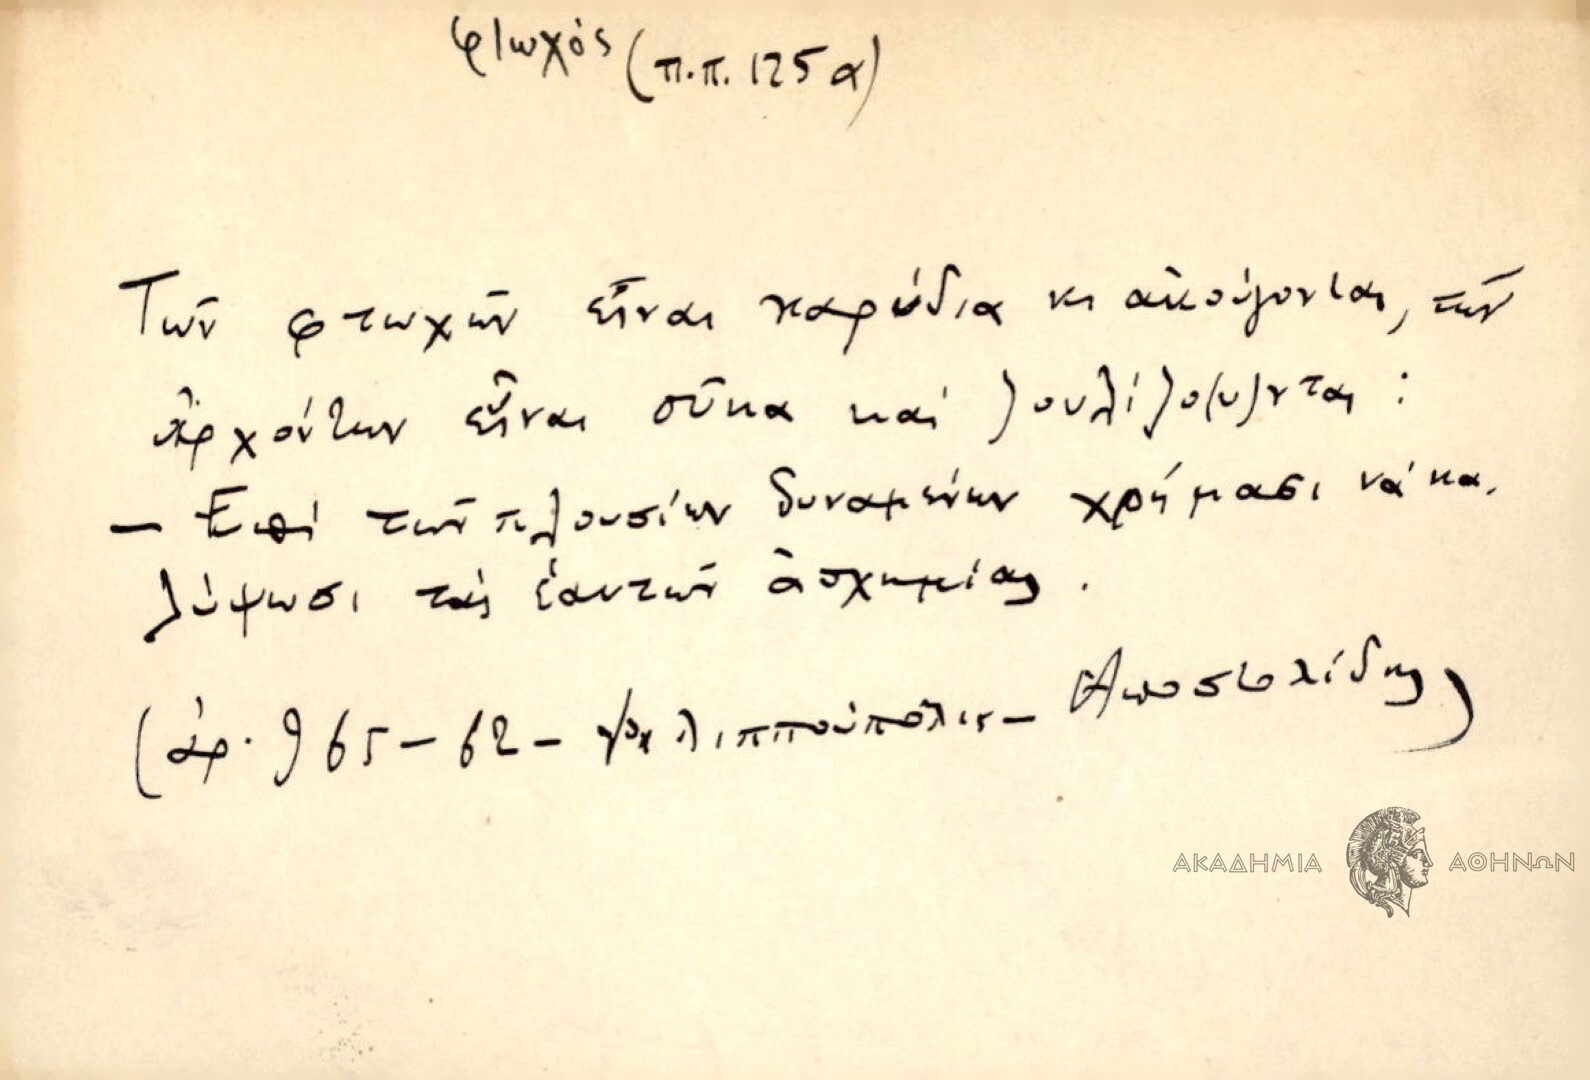 φτωχός (π.π. 125α)
Των φτωχών είναι καρύδια κι ακούγονται, των
ἀρχόντων εἶναι σῦκα καί ζουλίζο(υ)νται :
— Ἐπί τῶν πλουσίων δυναμένων χρήμασι νά κα-
λύψωσι τάς ἑαυτῶν ἀσχημίας.
(ἀρ. 965 – 62 – Φιλιππούπολις – Αποστολίδης)
ΑΚΑΔΗΜΙΑ ΑΘΗΝΩΝ